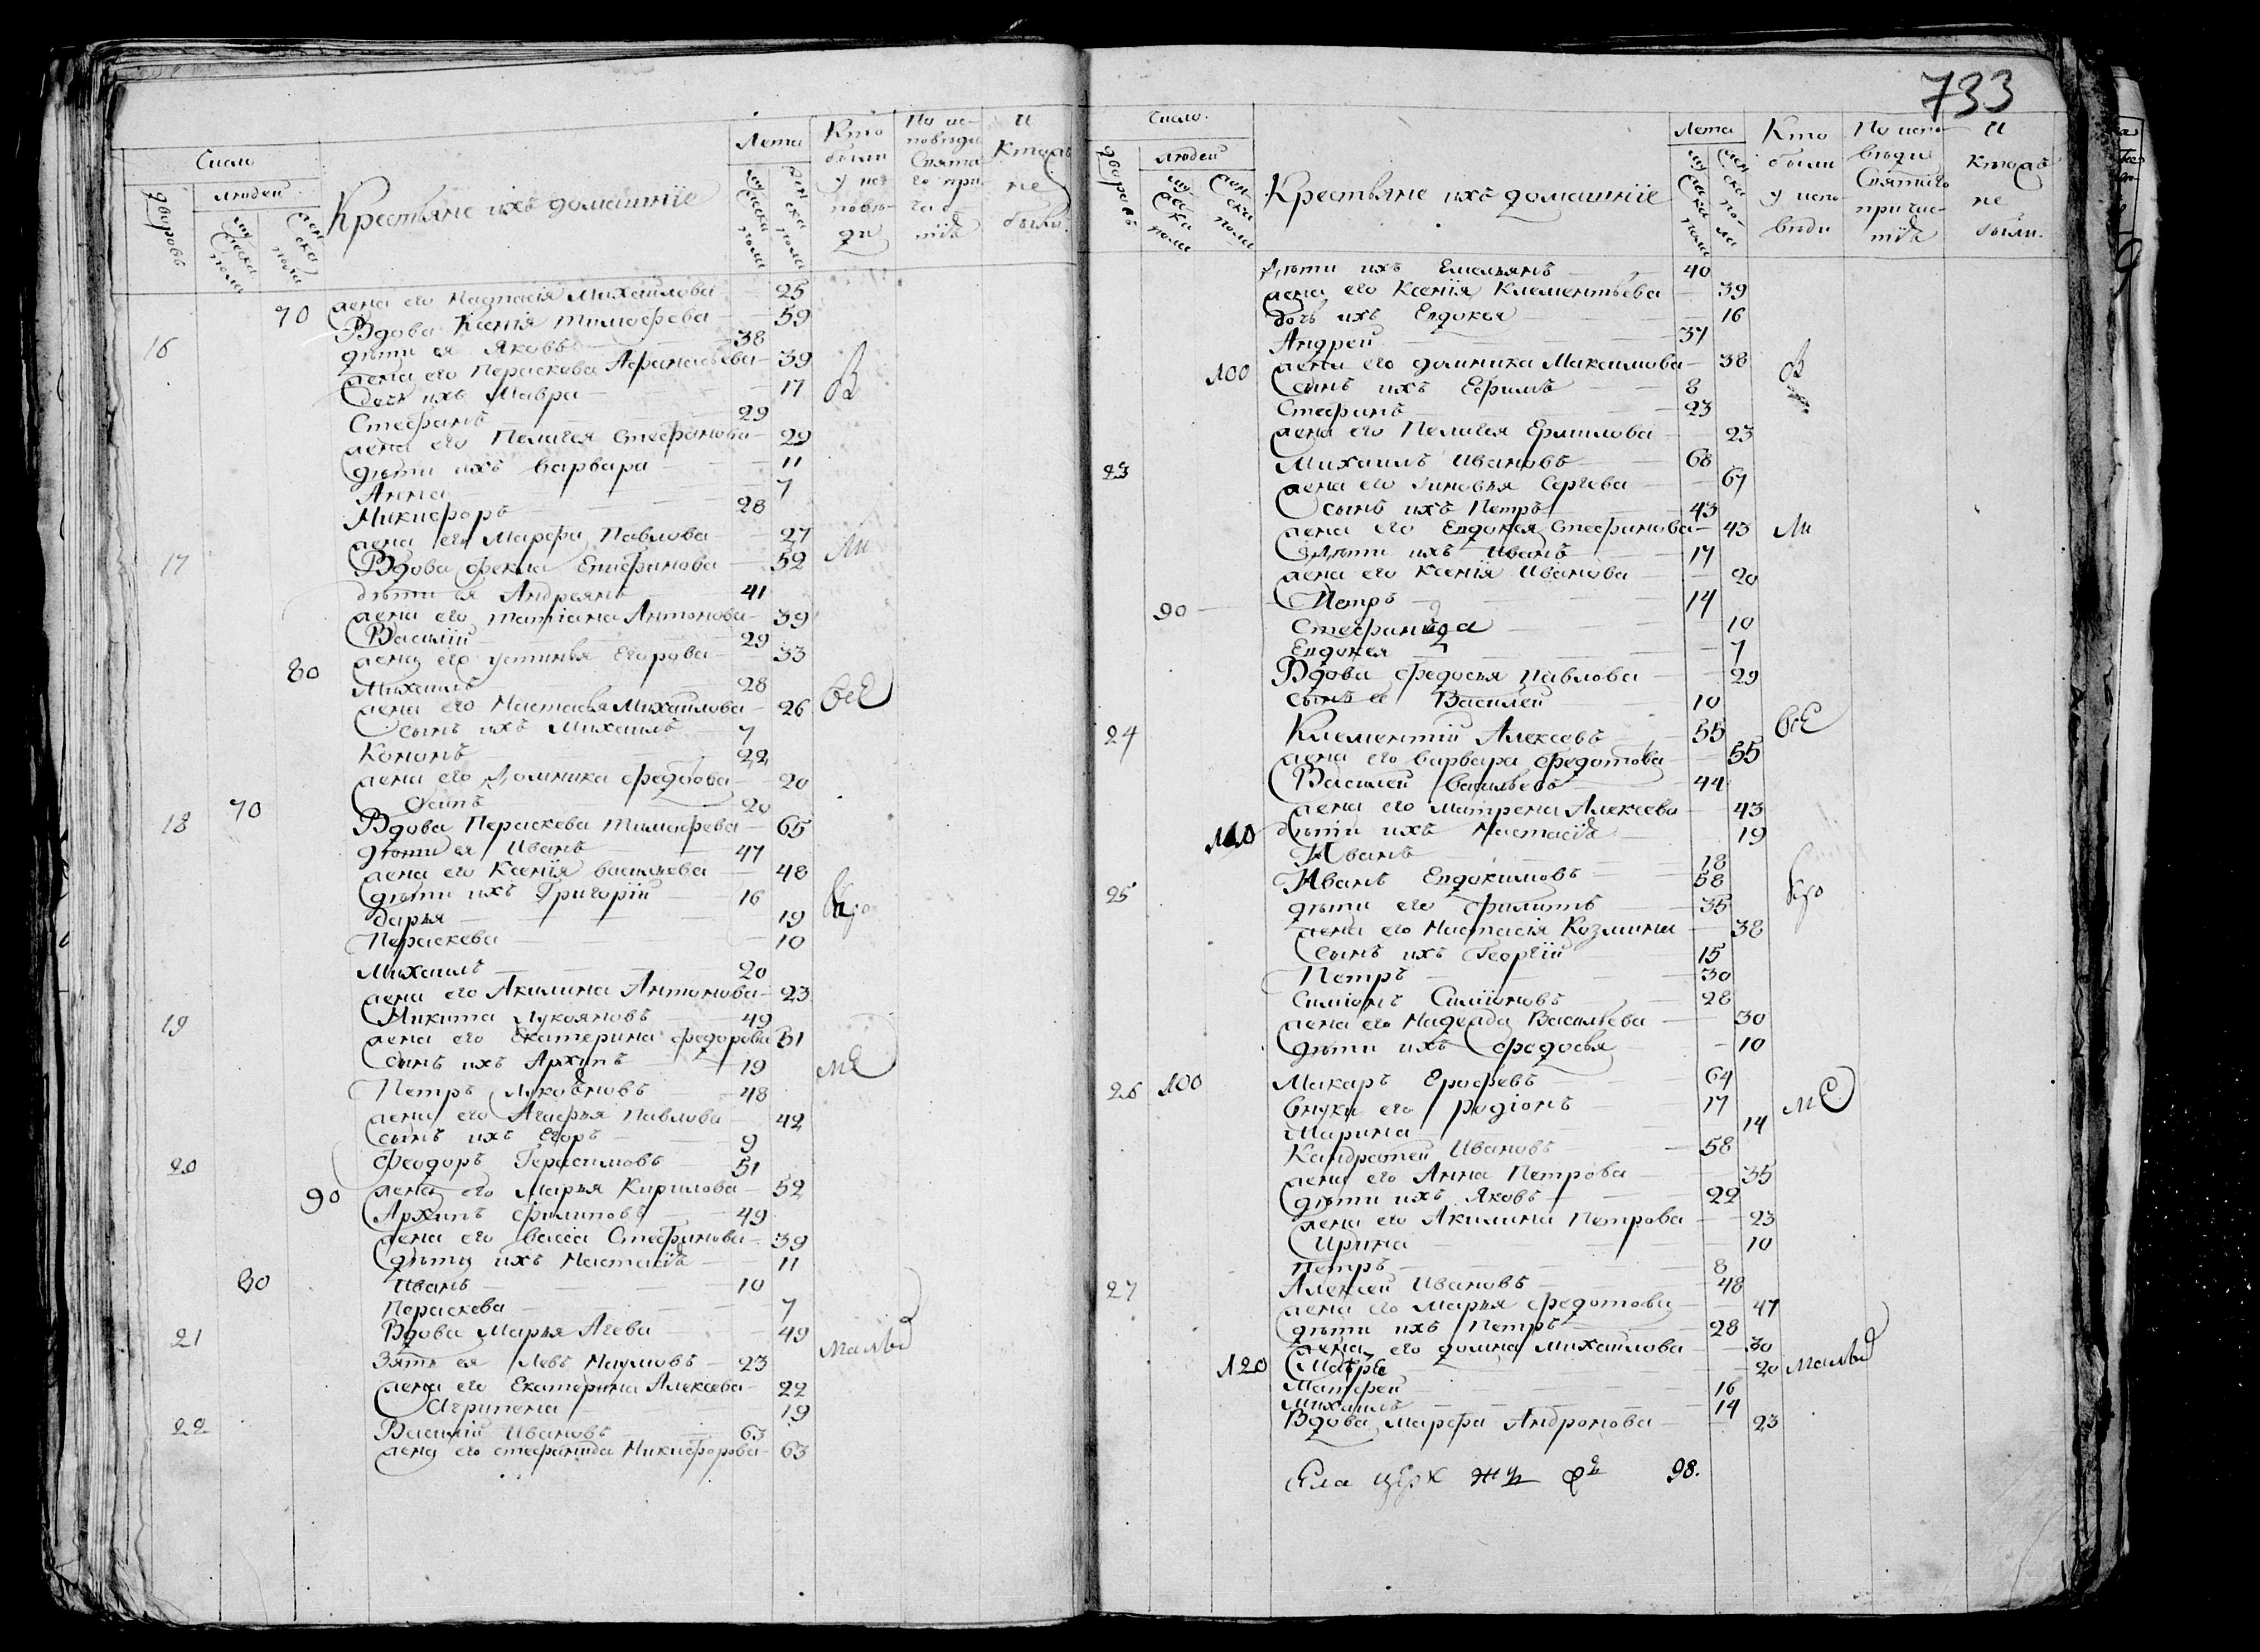 733
Число
дворовъ
людей
мужеска пола
женска пола
Крестьяне ихъ домашніе
Лета
мужеска пола
женска пола
Кто были у исповѣди
По исповѣди Святаго причастія
И Кто ихъ не были.
70 жена его Настасія Михаилова 25
16 Вдова Ксенія Тимофеева 59
дѣти ея Яковъ 38
жена его Пераскева Афанасьева 39
дочь ихъ Мавра 17
Стефанъ 29
жена его Пелагея Стефанова 29
дѣти ихъ Варвара 11
Анна 7
Микифоръ 28
жена его Марфа Павлова 27
17 Вдова Фекла Епифанова 52
дѣти ея Андреянъ 41
жена его Татіана Антонова 39
Василій 29
80 жена его Устинья Егорова 33
Михаилъ 28
жена его Настасья Михаилова 26
сынъ ихъ Михаилъ 7
Кононъ 22
жена его Домника Федорова 20
70 Осипъ 20
18 Вдова Пераскева Тимофеева 65
дѣти ея Иванъ 47
жена его Ксенія Васильева 48
дѣти ихъ Григорій 16
Дарья 19
Пераскева 10
Михаилъ 20
жена его Акилина Антонова 23
19 Микита Лукояновъ 49
жена его Екатерина Федорова 51
сынъ ихъ Архипъ 19
Петръ Лукояновъ 48
жена его Агафья Павлова 42
сынъ ихъ Егоръ 9
20 Феодоръ Герасимовъ 51
90 жена его Марья Кирилова 52
Архипъ Филиповъ 49
жена его Васса Стефанова 39
дѣти ихъ Настасія 11
80 Иванъ 10
Пераскева 7
21 Вдова Марья Агева 49
Зять ея Левъ Наумовъ 23
жена его Екатерина Алексева 22
Агрипена 19
22 Василій Ивановъ 63
жена его Стефанида Микифорова 63
В
Ли
все
Кро
ме
малы
Число.
дворовъ
людей
мужеска пола
женска пола
Крестьяне ихъ домашніе
Лета
мужеска пола
женска пола
Кто были у исповѣди
По исповѣди Святаго причастія
И Кто ихъ не были.
Дѣти ихъ Емельянъ 40
жена его Ксенія Клементьева 39
дочь ихъ Евдокея 16
Андрей 37
100 жена его Домника Максимова 38
сынъ ихъ Ефимъ 8
Стефанъ 23
жена его Пелагея Ермилова 23
23 Михаилъ Ивановъ 68
жена его Зиновья Сергева 67
сынъ ихъ Петръ 43
жена его Евдокея Стефанова 43
Дѣти ихъ Иванъ 17
жена его Ксенія Иванова 20
90 Петръ 14
Стефанида 10
Евдокея 7
Вдова Федосья Павлова 29
сынъ ее Василей 10
24 Клементій Алексевъ 55
жена его Варвара Федотова 55
Василей Васильевъ 44
жена его Матрена Алексева 43
110 дѣти ихъ Настасія 19
Иванъ 18
25 Иванъ Евдокимовъ 58
дѣти его Филипъ 35
жена его Настасія Козмина 38
сынъ ихъ Георгій 15
Петръ 30
Симіонъ Симіоновъ 28
жена его Надежда Васильева 30
дѣти ихъ Федосья 10
26 100 Макаръ Ерофевъ 64
Внуки его Родіонъ 17
Марина 14
Кандратей Ивановъ 58
жена его Анна Петрова 35
дѣти ихъ Яковъ 22
жена его Акилина Петрова 23
Ирина 10
Петръ 8
27 Алексей Ивановъ 48
жена его Марья Федотова 47
дѣти ихъ Петръ 28
жена его Домна Михаилова 30
120 Мавра 20
Матфей 16
Михаилъ 14
Вдова Марфа Андронова 23
В
Ли
все
Кро
ме
малы
98.